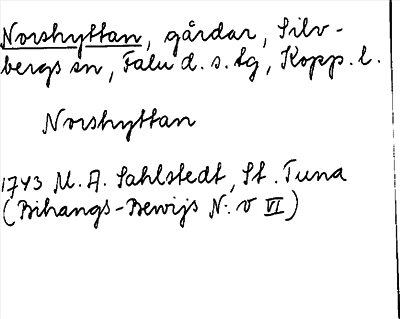 Norshyttan, gårdar, Silv-
bergs sn, Falu d. s. tg, Kopp. l.
Norshyttan
1743 M. A. Sahlstedt, St. Tuna
(Bihangs-Bewijs N. V VI)